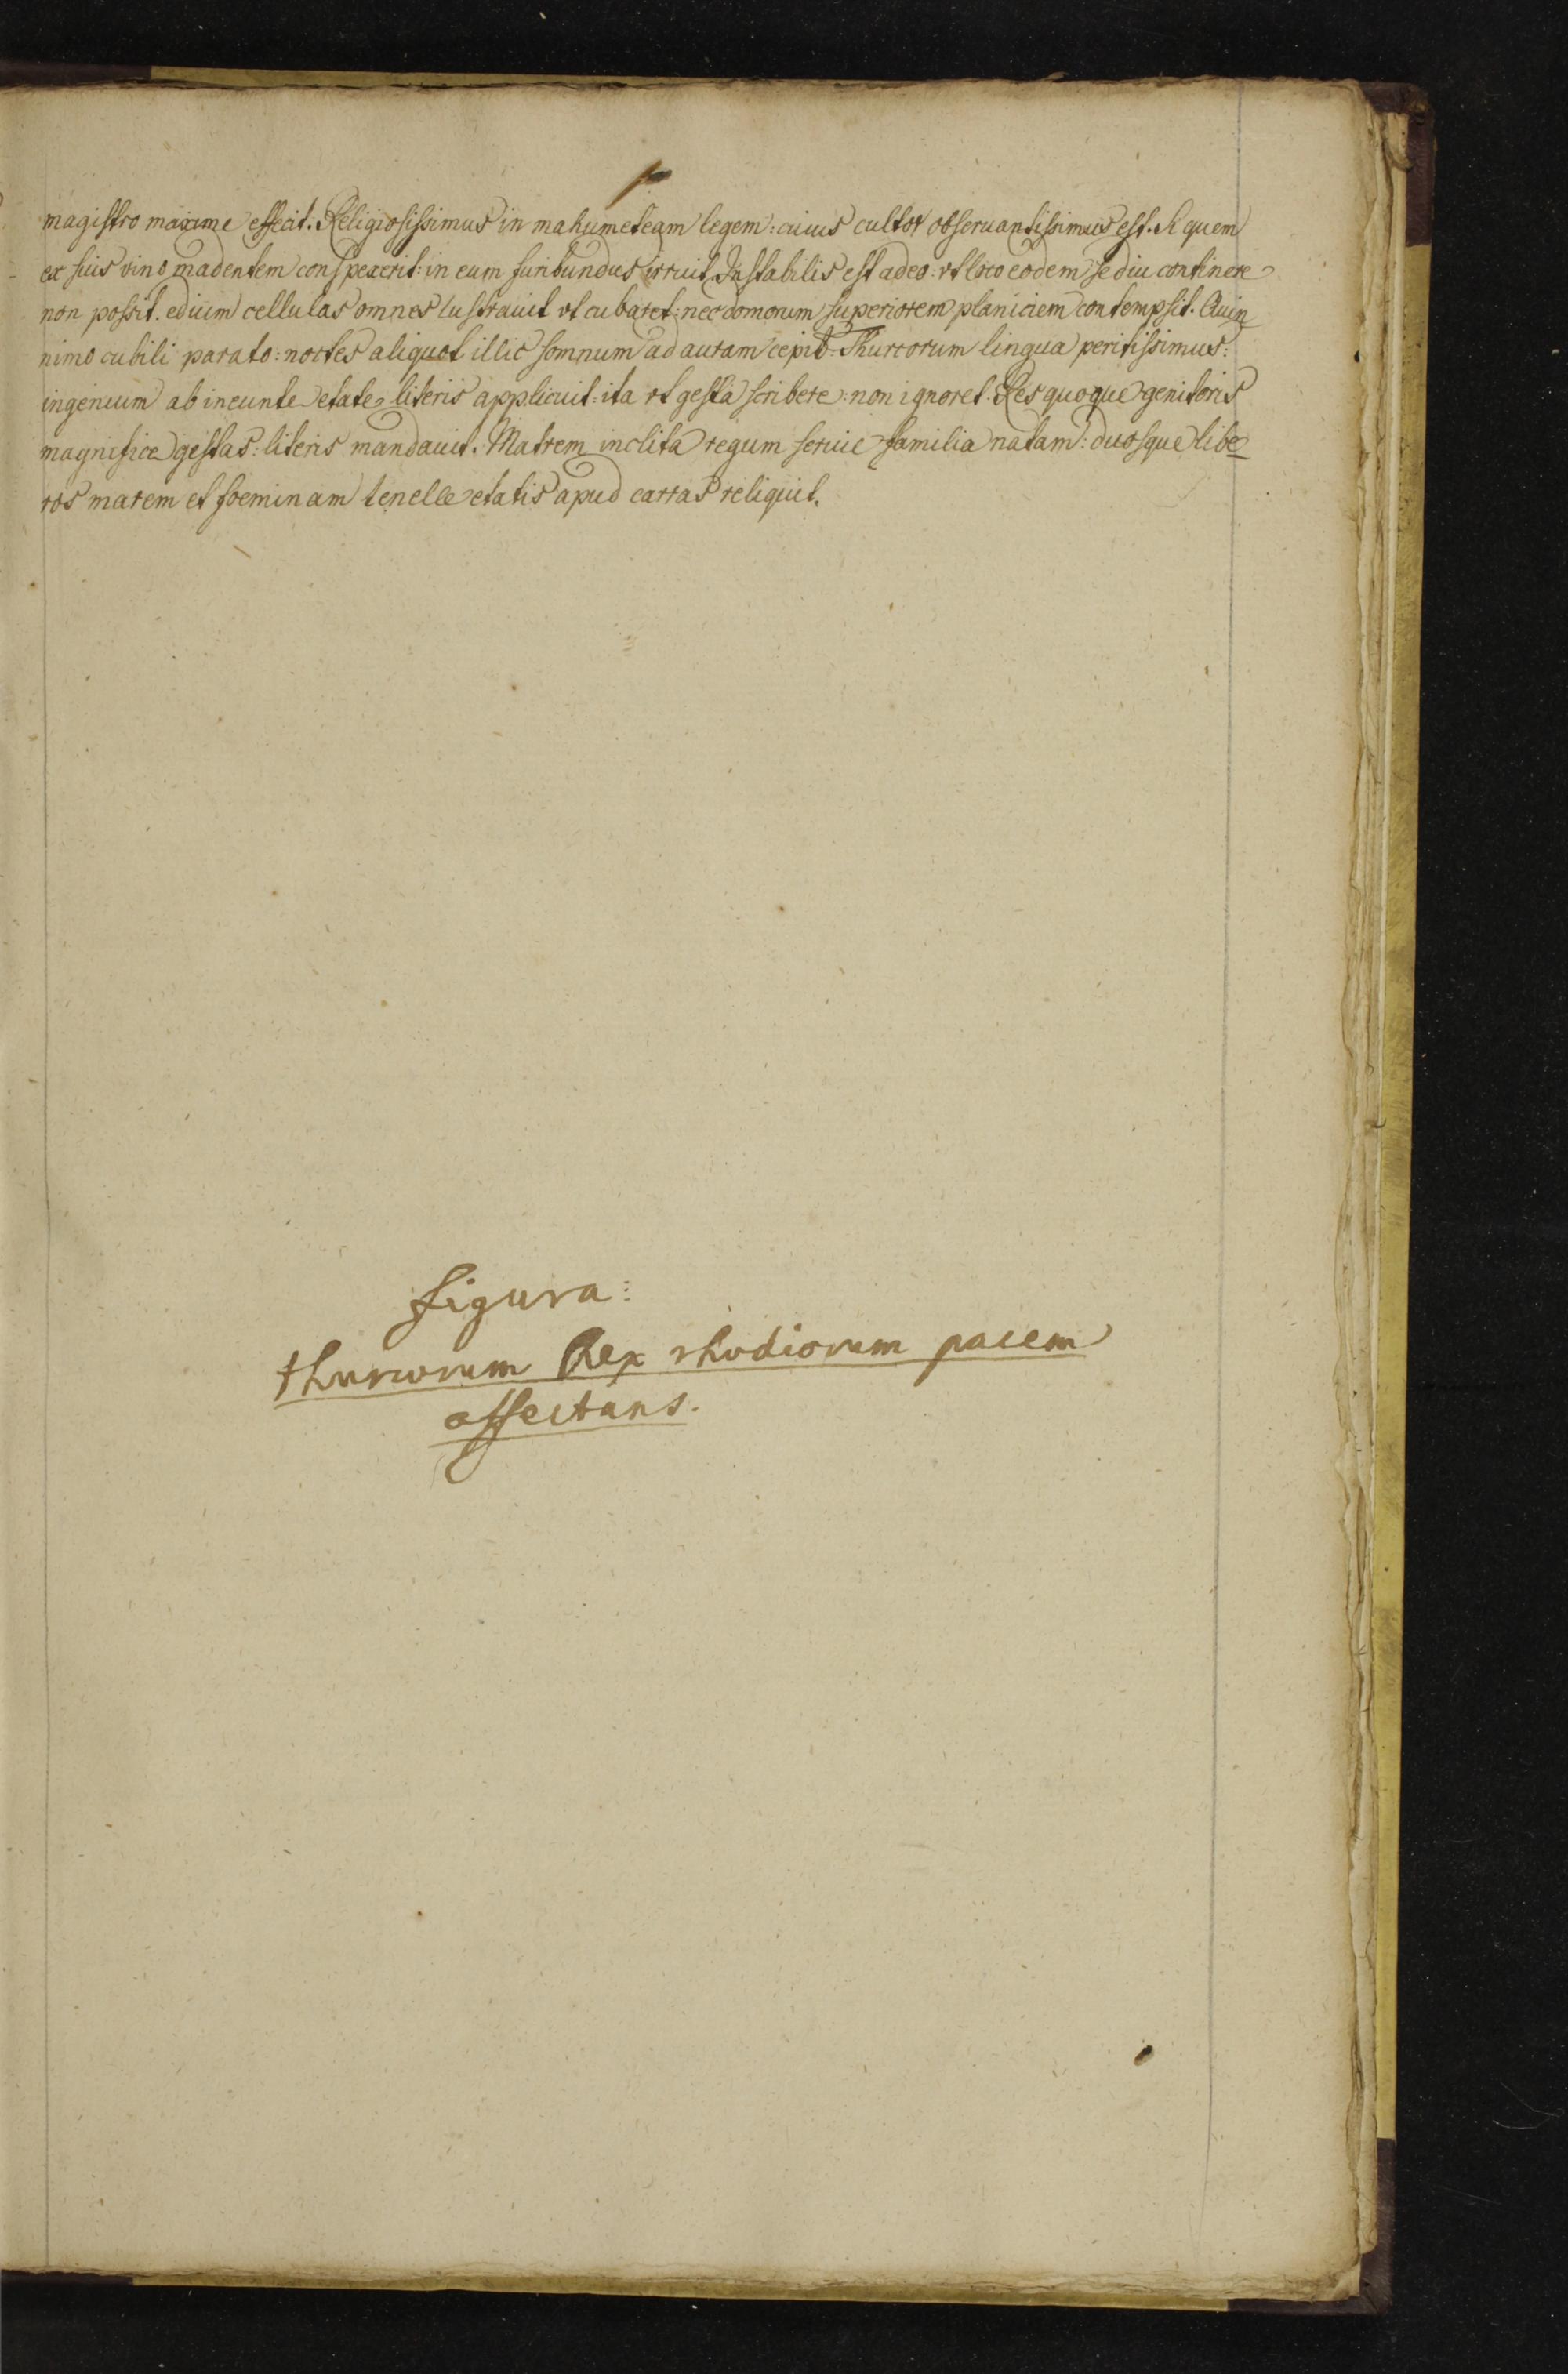 magistro maxime effecit. Religiosissimus in mahumeteam legem: cuius cultor obseruantissimus est. Si quem
ex suis vino madentem conspexerit: in eum furibundus irruit. Instabilis est adeo: vt loco eodem se diu continere
non possit. edium cellulas omnes lustrauit vt cubaret: nec domorum superiorem planiciem contempsit. Quin
nimo cubili parato: noctes aliquot illic somnum ad auram cepit. Thurcorum lingua peritissimus:
ingenium ab ineunte etate literis applicuit: ita vt gesta scribere: non ignoret. Res quoque genitoris
magnifice gestas: literis mandauit. Matrem inclita regum seruie familia natam: duosque libe
ros marem et foeminam tenelle etatis apud carras reliquit.
figura:
thurcorum Rex rhodiorum pacem
affectans.